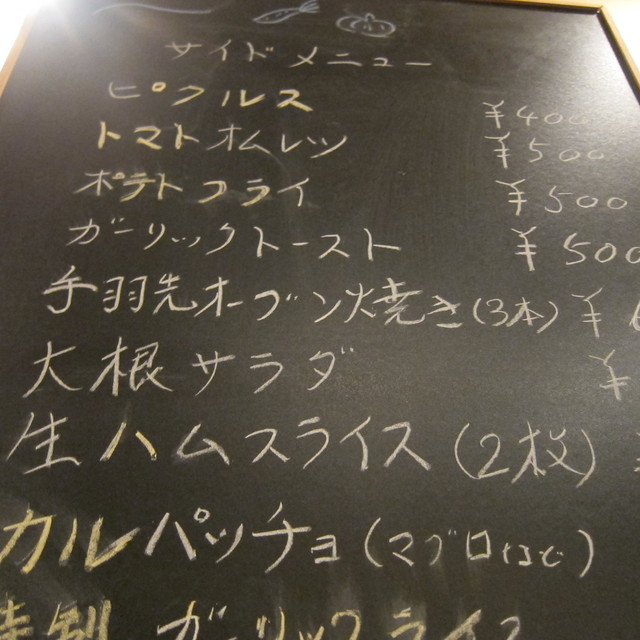 サイドメニュー
ピクルス ¥400
トマトオムレツ ¥500
ポテトフライ ¥500
ガーリックトースト ¥500
手羽先オーブン焼き(3本) ¥
大根サラダ ¥
生ハムスライス(2枚)
カルパッチョ(マグロほど)
特製 ガーリックライス